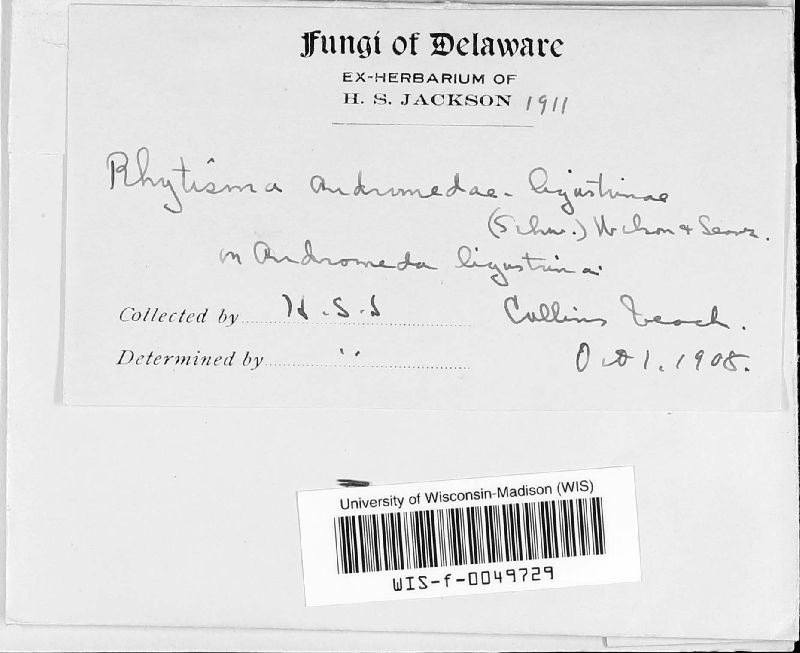 Fungi of Delaware
EX-HERBARIUM OF
H. S. JACKSON 1911
Rhytisma andromedae-ligustrinae
(Schw.) &
on Andromeda ligustrina.
Collected by H.S.J Collins Beach.
Determined by " Oct 1. 1908.
University of Wisconsin-Madison (WIS)
WIS-f-0049729